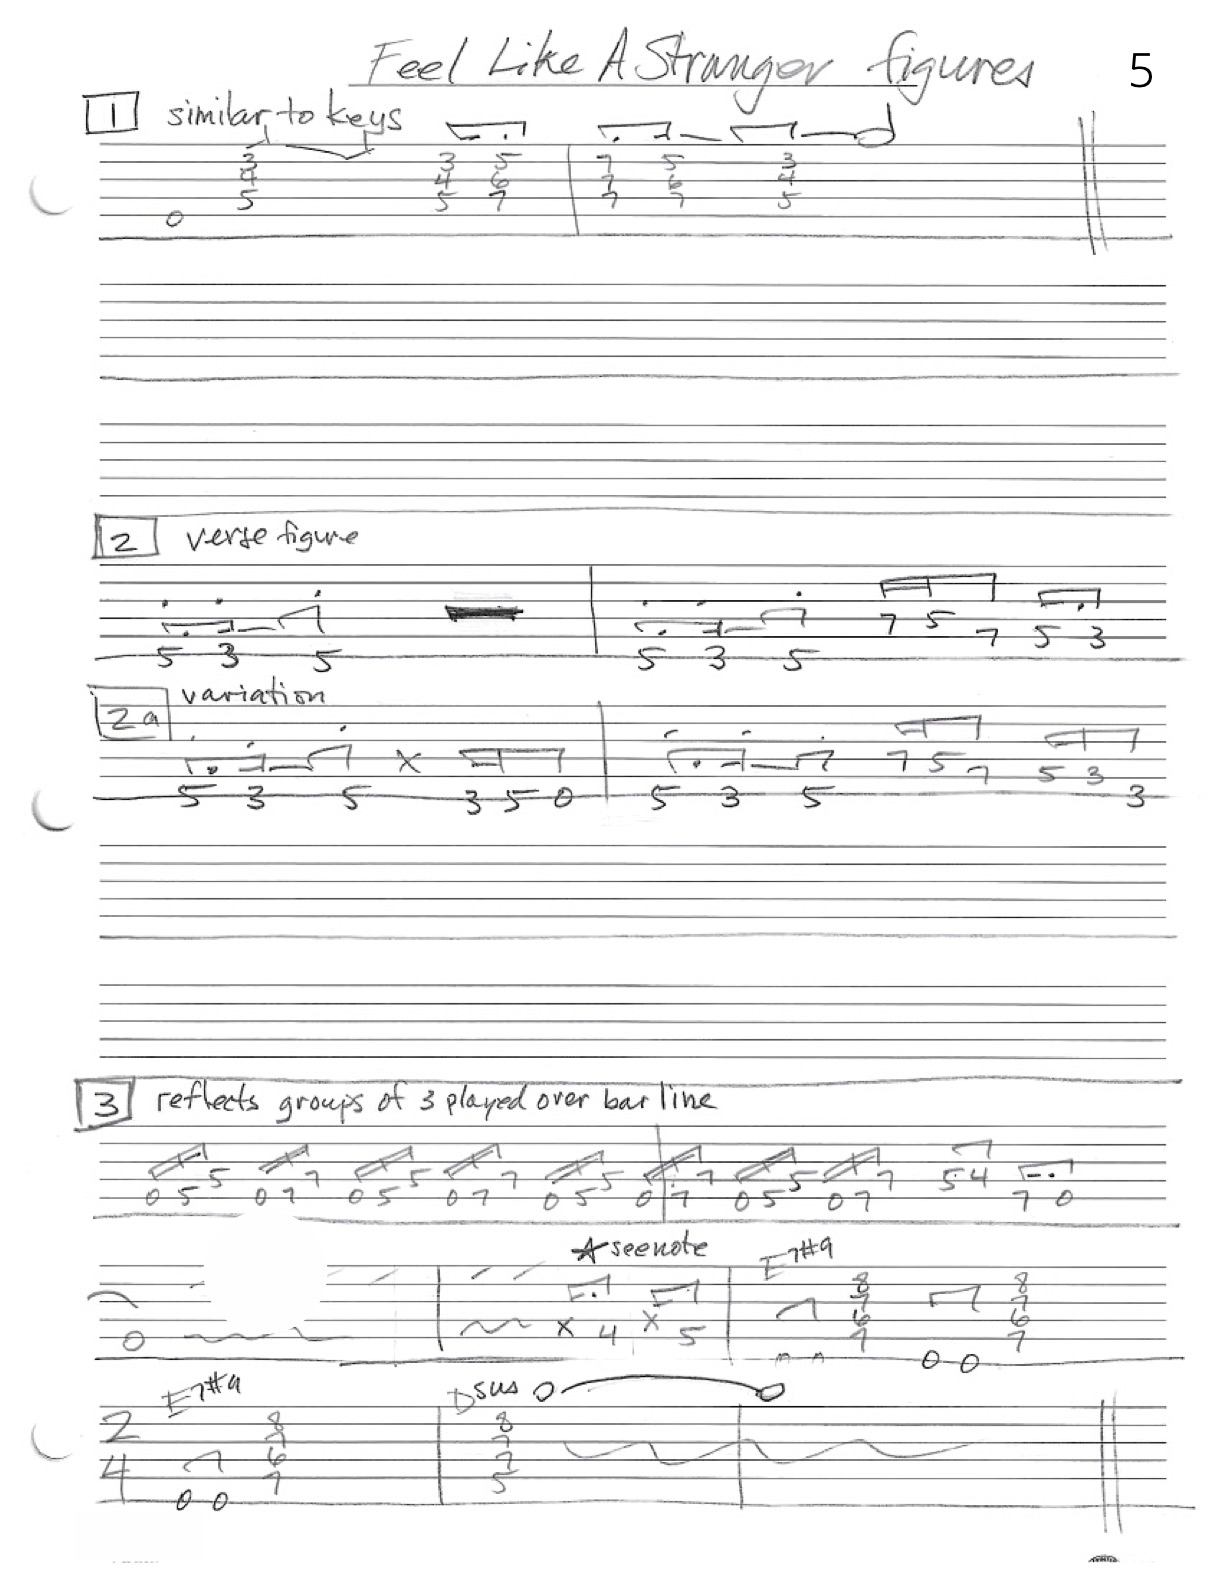 Feel Like A Stranger figures
5
1 similar to keys
3 3 5 7 5 3
4 4 6 7 6 4
5 5 7 7 7 5
0
2 verse figure
7 5
7 5 3
5 3 5 5 3 5
2a variation
x 7 5 7 5 3
5 3 5 3 5 0 5 3 5 3
3 reflects groups of 3 played over bar line
5 7 5 7 5 7 5 7 5 4
0 5 0 7 0 5 0 7 0 5 0 7 0 5 0 7 7 0
★ see note E7#9
8 8
7 7
x 4 x 5 6 6
0 7 7
0 0
E7#9 Dsus
2 8 8
7 7
4 6 7
7 5
0 0